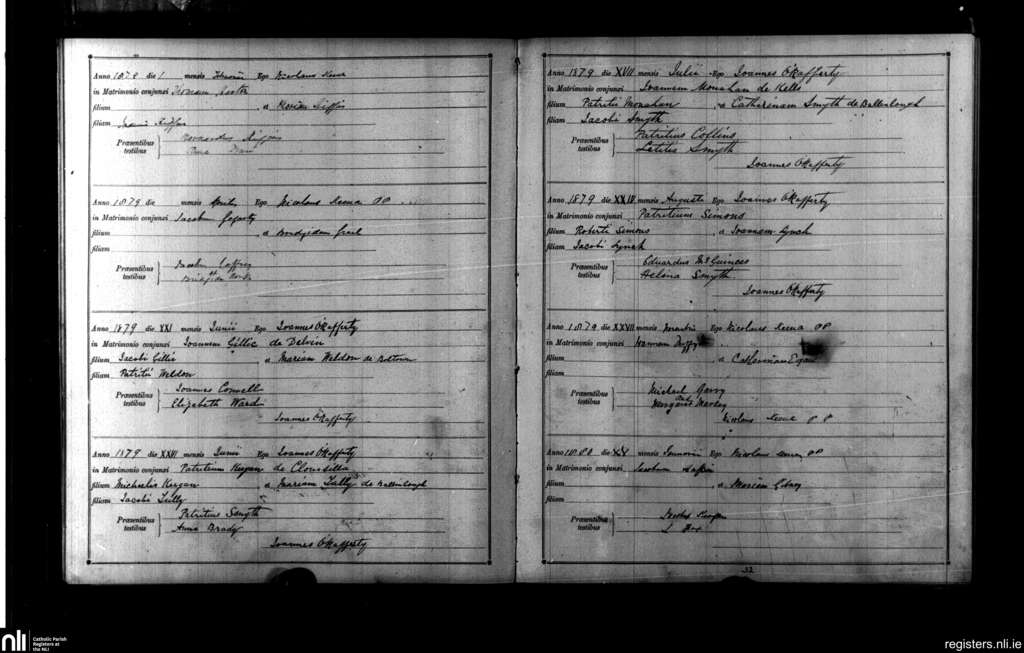 Anno 1879 die 1 mensis Ego Nicolaus
in Matrimonio conjunxi Thomam
filium a Mariam Griffin
filiam
Præsentibus Bernardus Griffin
testibus Anna
Anno 1879 die mensis Aprilis Ego Nicolaus Keena PP
in Matrimonio conjunxi Jacobum Fogarty
filium a Brudgidam Greel
filiam
Præsentibus Jacobus Caffrey
testibus Bridgida
Anno 1879 die XXI mensis Junii Ego Joannes O'Rafferty
in Matrimonio conjunxi Joannem Gillic de Delvin
filium Jacobi Gillic a Mariam Weldon de Boltown
filiam Patritii Weldon
Præsentibus Joannes Connell
testibus Elizabeth Wardn
Joannes O'Rafferty
Anno 1879 die XXVI mensis Junii Ego Joannes O'Rafferty
in Matrimonio conjunxi Patritium Keegan de Clonsilla
filium Michaelis Keegan a Mariam Tully de Ballinlough
filiam Jacobi Tully
Præsentibus Patritius Smyth
testibus Anna Brady
Joannes O'Rafferty
Anno 1879 die XVII mensis Julii Ego Joannes O'Rafferty
in Matrimonio conjunxi Joannem Monahan de Kells
filium Patritii Monahan a Catherinam Smyth de Ballinlough
filiam Jacobi Smyth
Præsentibus Patritius Collins
testibus Letitia Smyth
Joannes O'Rafferty
Anno 1879 die XXIV mensis Augusti Ego Joannes O'Rafferty
in Matrimonio conjunxi Patritium Simons
filium Roberti Simons a Joannam Lynch
filiam Jacobi Lynch
Præsentibus Eduardus McGuiness
testibus Helena Smyth
Joannes O'Rafferty
Anno 1879 die XXVII mensis Ego Nicolaus Keena PP
in Matrimonio conjunxi Duffy
filium a Catherinam Egan
filiam
Præsentibus Michael Garry
testibus Margaret Marley
Nicolaus Keena PP
Anno 1880 die XX mensis Januarii Ego Nicolaus Keena PP
in Matrimonio conjunxi Jacobum
filium a Mariam
filiam
Præsentibus
testibus
32
nli Catholic Parish
Registers at
the NLI
registers.nli.ie